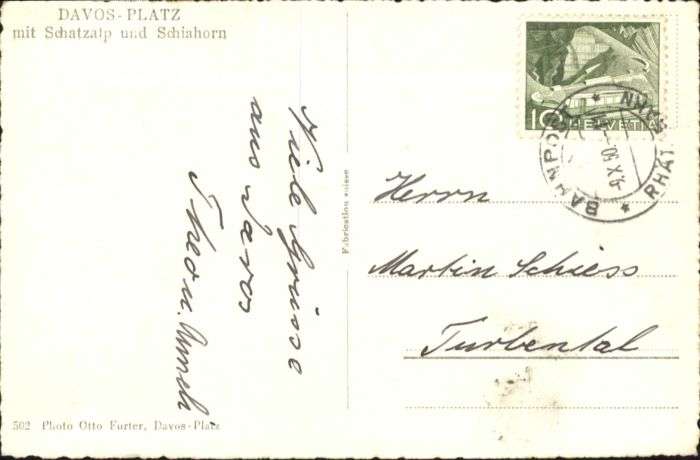 DAVOS-PLATZ
mit Schatzalp und Schiahorn
Viele Grüsse
aus Davos
Theo u.
502 Photo Otto Furter, Davos-Platz
Fabrication suisse
10 HELVETIA
BAHNPOST
RHÄT. BAHN
Herrn
Martin Schiess
Turbental